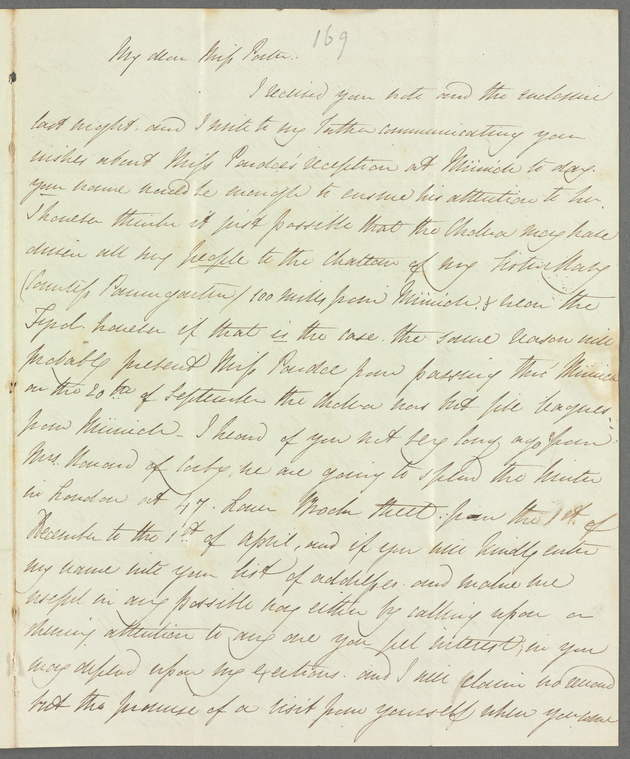 169
My dear Miss Porter.
I received your note and the enclosure
last night. and I write to my Father communicating your
wishes about Miss Pardoe's reception at Münich to day.
your name would be enough to ensure his attention to her.
I however think it just possible that the Cholera may have
driven all my people to the Chateau of my Sister Mary
(Countess Baumgarten) 100 miles from Münich. & near the
Tyrol. however if that is the case. the same reason will
probably prevent Miss Pardoe from passing thro' Münich
on the 20th of September the Cholera was not five leagues
from Münich - I heard of you not very long ago from
Mrs. Howard of Corby. we are going to spend the Winter
in London at 47. Lower Brook Street. from the 1st. of
December to the 1st. of April, and if you will kindly enter
my name into your list of addresses. and make me
useful in any possible way either by calling upon or
shewing attention to any one you feel interested, in you
may depend upon my exertions. and I will claim no reward
but the promise of a visit from yourself when you come